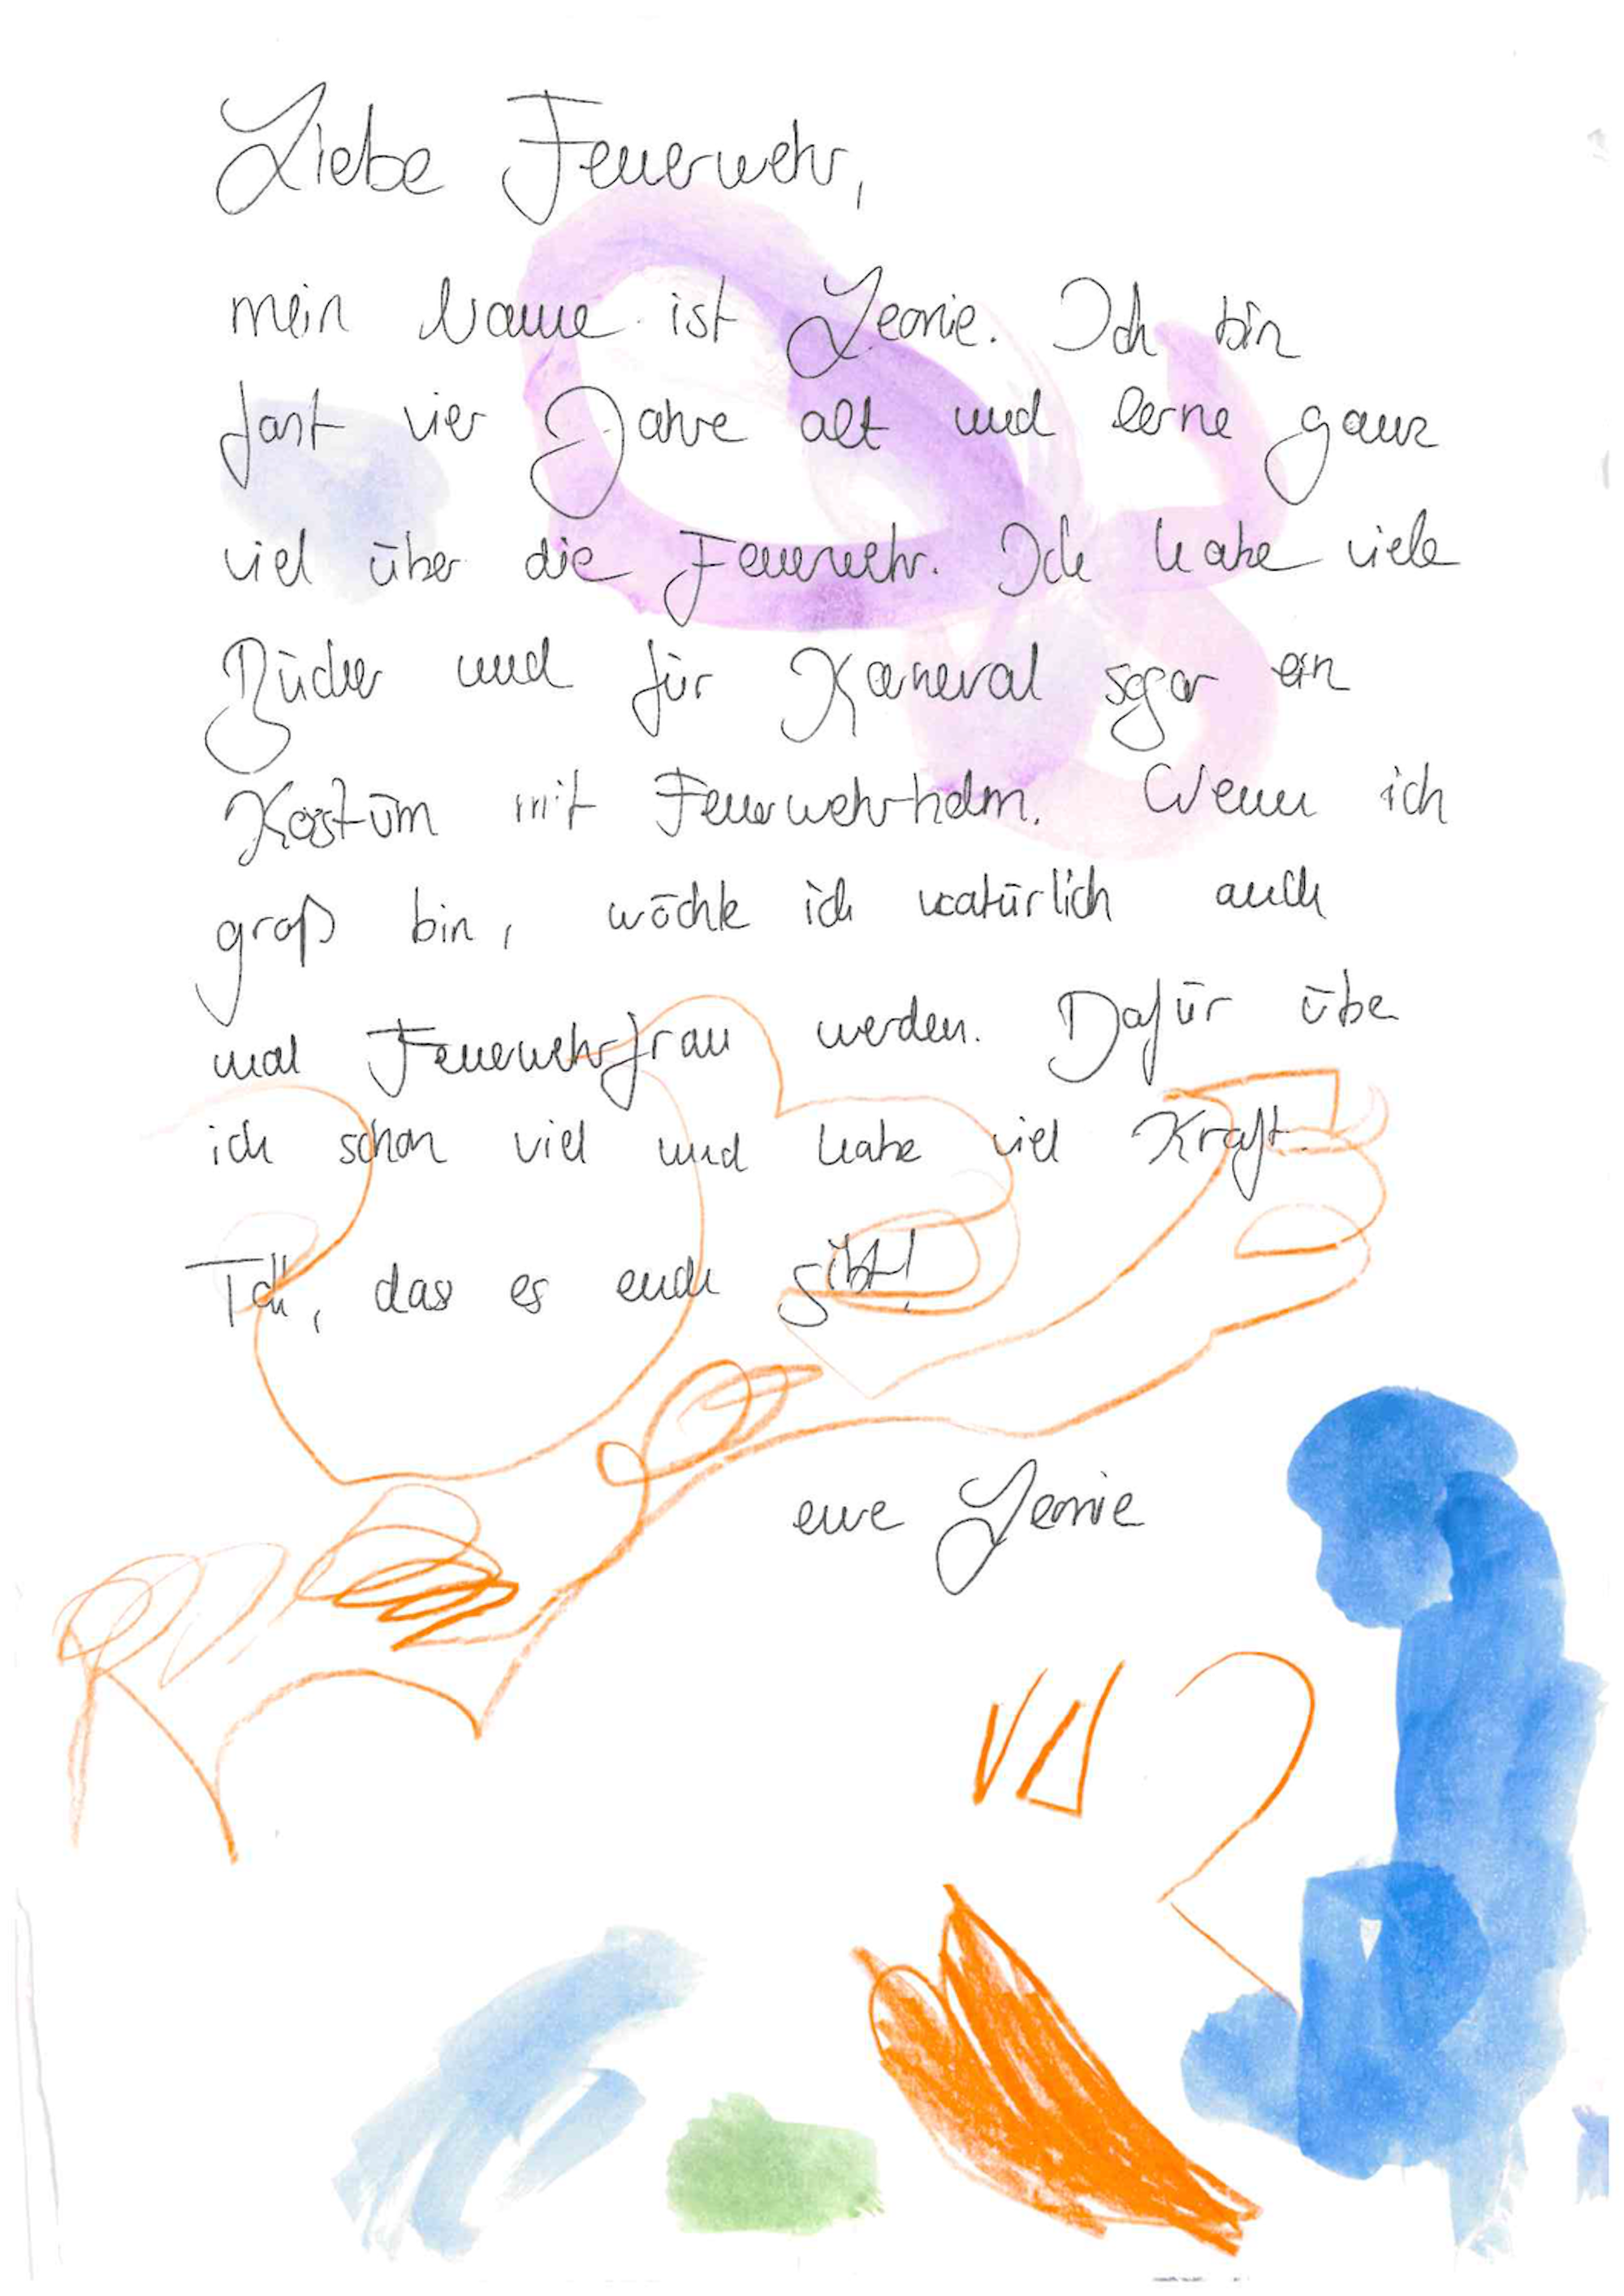 Liebe Feuerwehr,
mein Name ist Leonie. Ich bin
fast vier Jahre alt und lerne ganz
viel über die Feuerwehr. Ich habe viele
Bücher und für Karneval sogar ein
Kostüm mit Feuerwehrhelm. Wenn ich
groß bin, möchte ich natürlich auch
mal Feuerwehrfrau werden. Dafür übe
ich schon viel und habe viel Kraft.
Toll, das es euch gibt!
eure Leonie